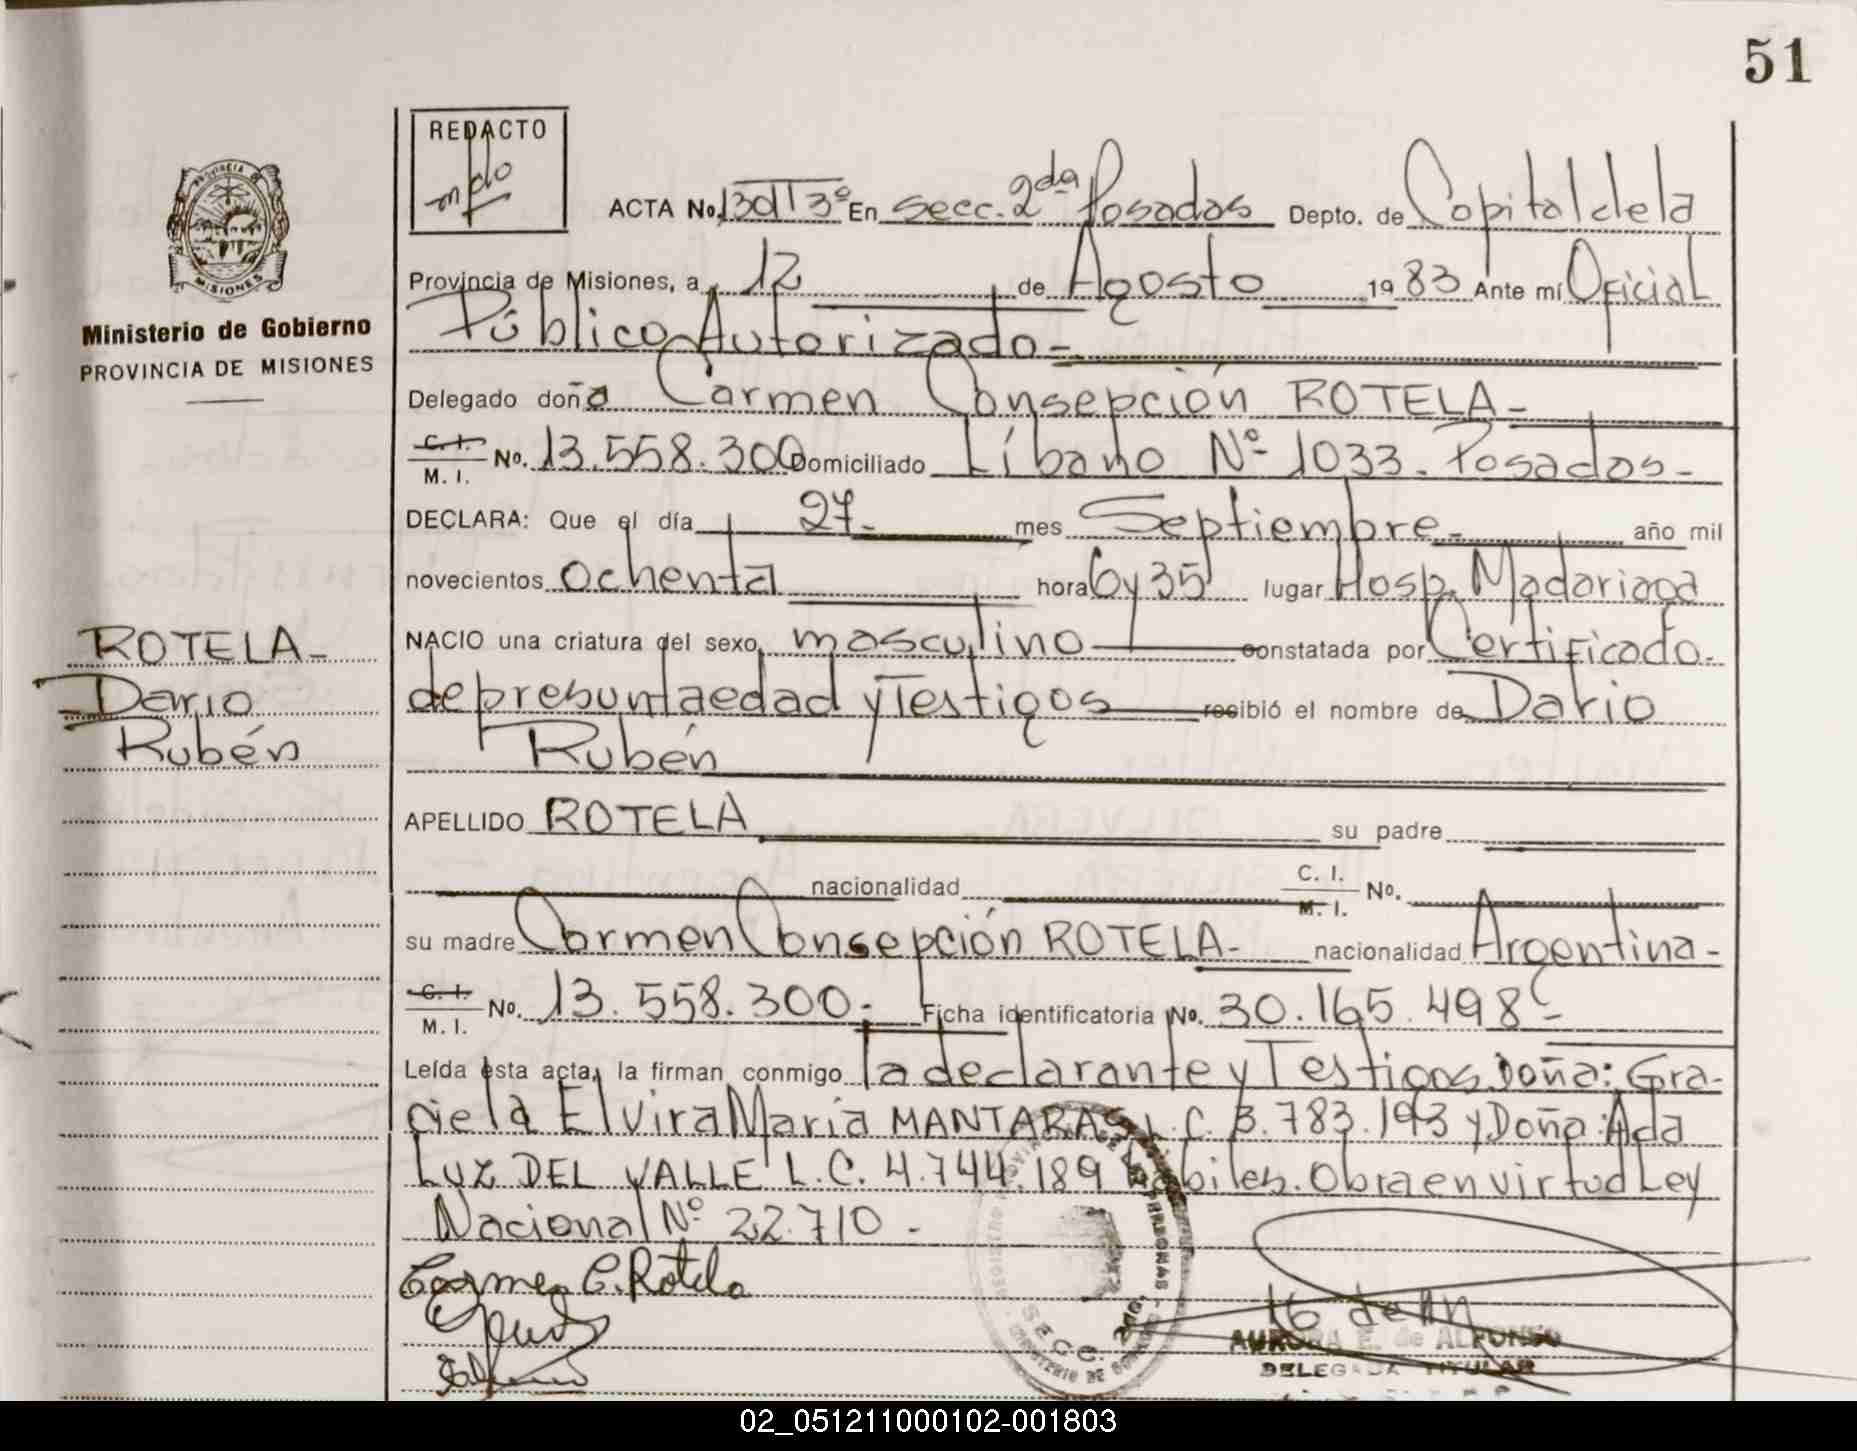 51
REDACTO
ACTA No. 1301 T 3º En secc. 2da Posadas Depto. de Capital de la
Provincia de Misiones, a 12 de Agosto 1983 Ante mí Oficial
Público Autorizado -
Ministerio de Gobierno
PROVINCIA DE MISIONES
Delegado doña Carmen Consepción ROTELA -
C. I.
M. I. No. 13.558.300 Domiciliado Líbano Nº 1033. Posadas -
DECLARA: Que el día 27- mes Septiembre - año mil
novecientos ochenta hora 6 y 35 lugar Hosp. Madariaga
NACIO una criatura del sexo masculino constatada por Certificado
de presunta edad y Testigos recibió el nombre de Dario
Rubén
ROTELA -
Dario
Rubén
APELLIDO ROTELA su padre
nacionalidad C. I.
M. I. No.
su madre Carmen Consepción ROTELA - nacionalidad Argentina -
C. I.
M. I. No. 13.558.300 - Ficha identificatoria No. 30.165.498 -
Leída esta acta, la firman conmigo la declarante y Testigos Doña: Gra-
ciela Elvira María MANTARAS L.C. 3.783.193 y Doña: Ada
Luz DEL VALLE L.C. 4.744.189 habiles. Obra en virtud Ley
Nacional Nº 22.710 -
Carmen C. Rotela
AURORA E. de ALFONSO
DELEGADA TITULAR
02_051211000102-001803